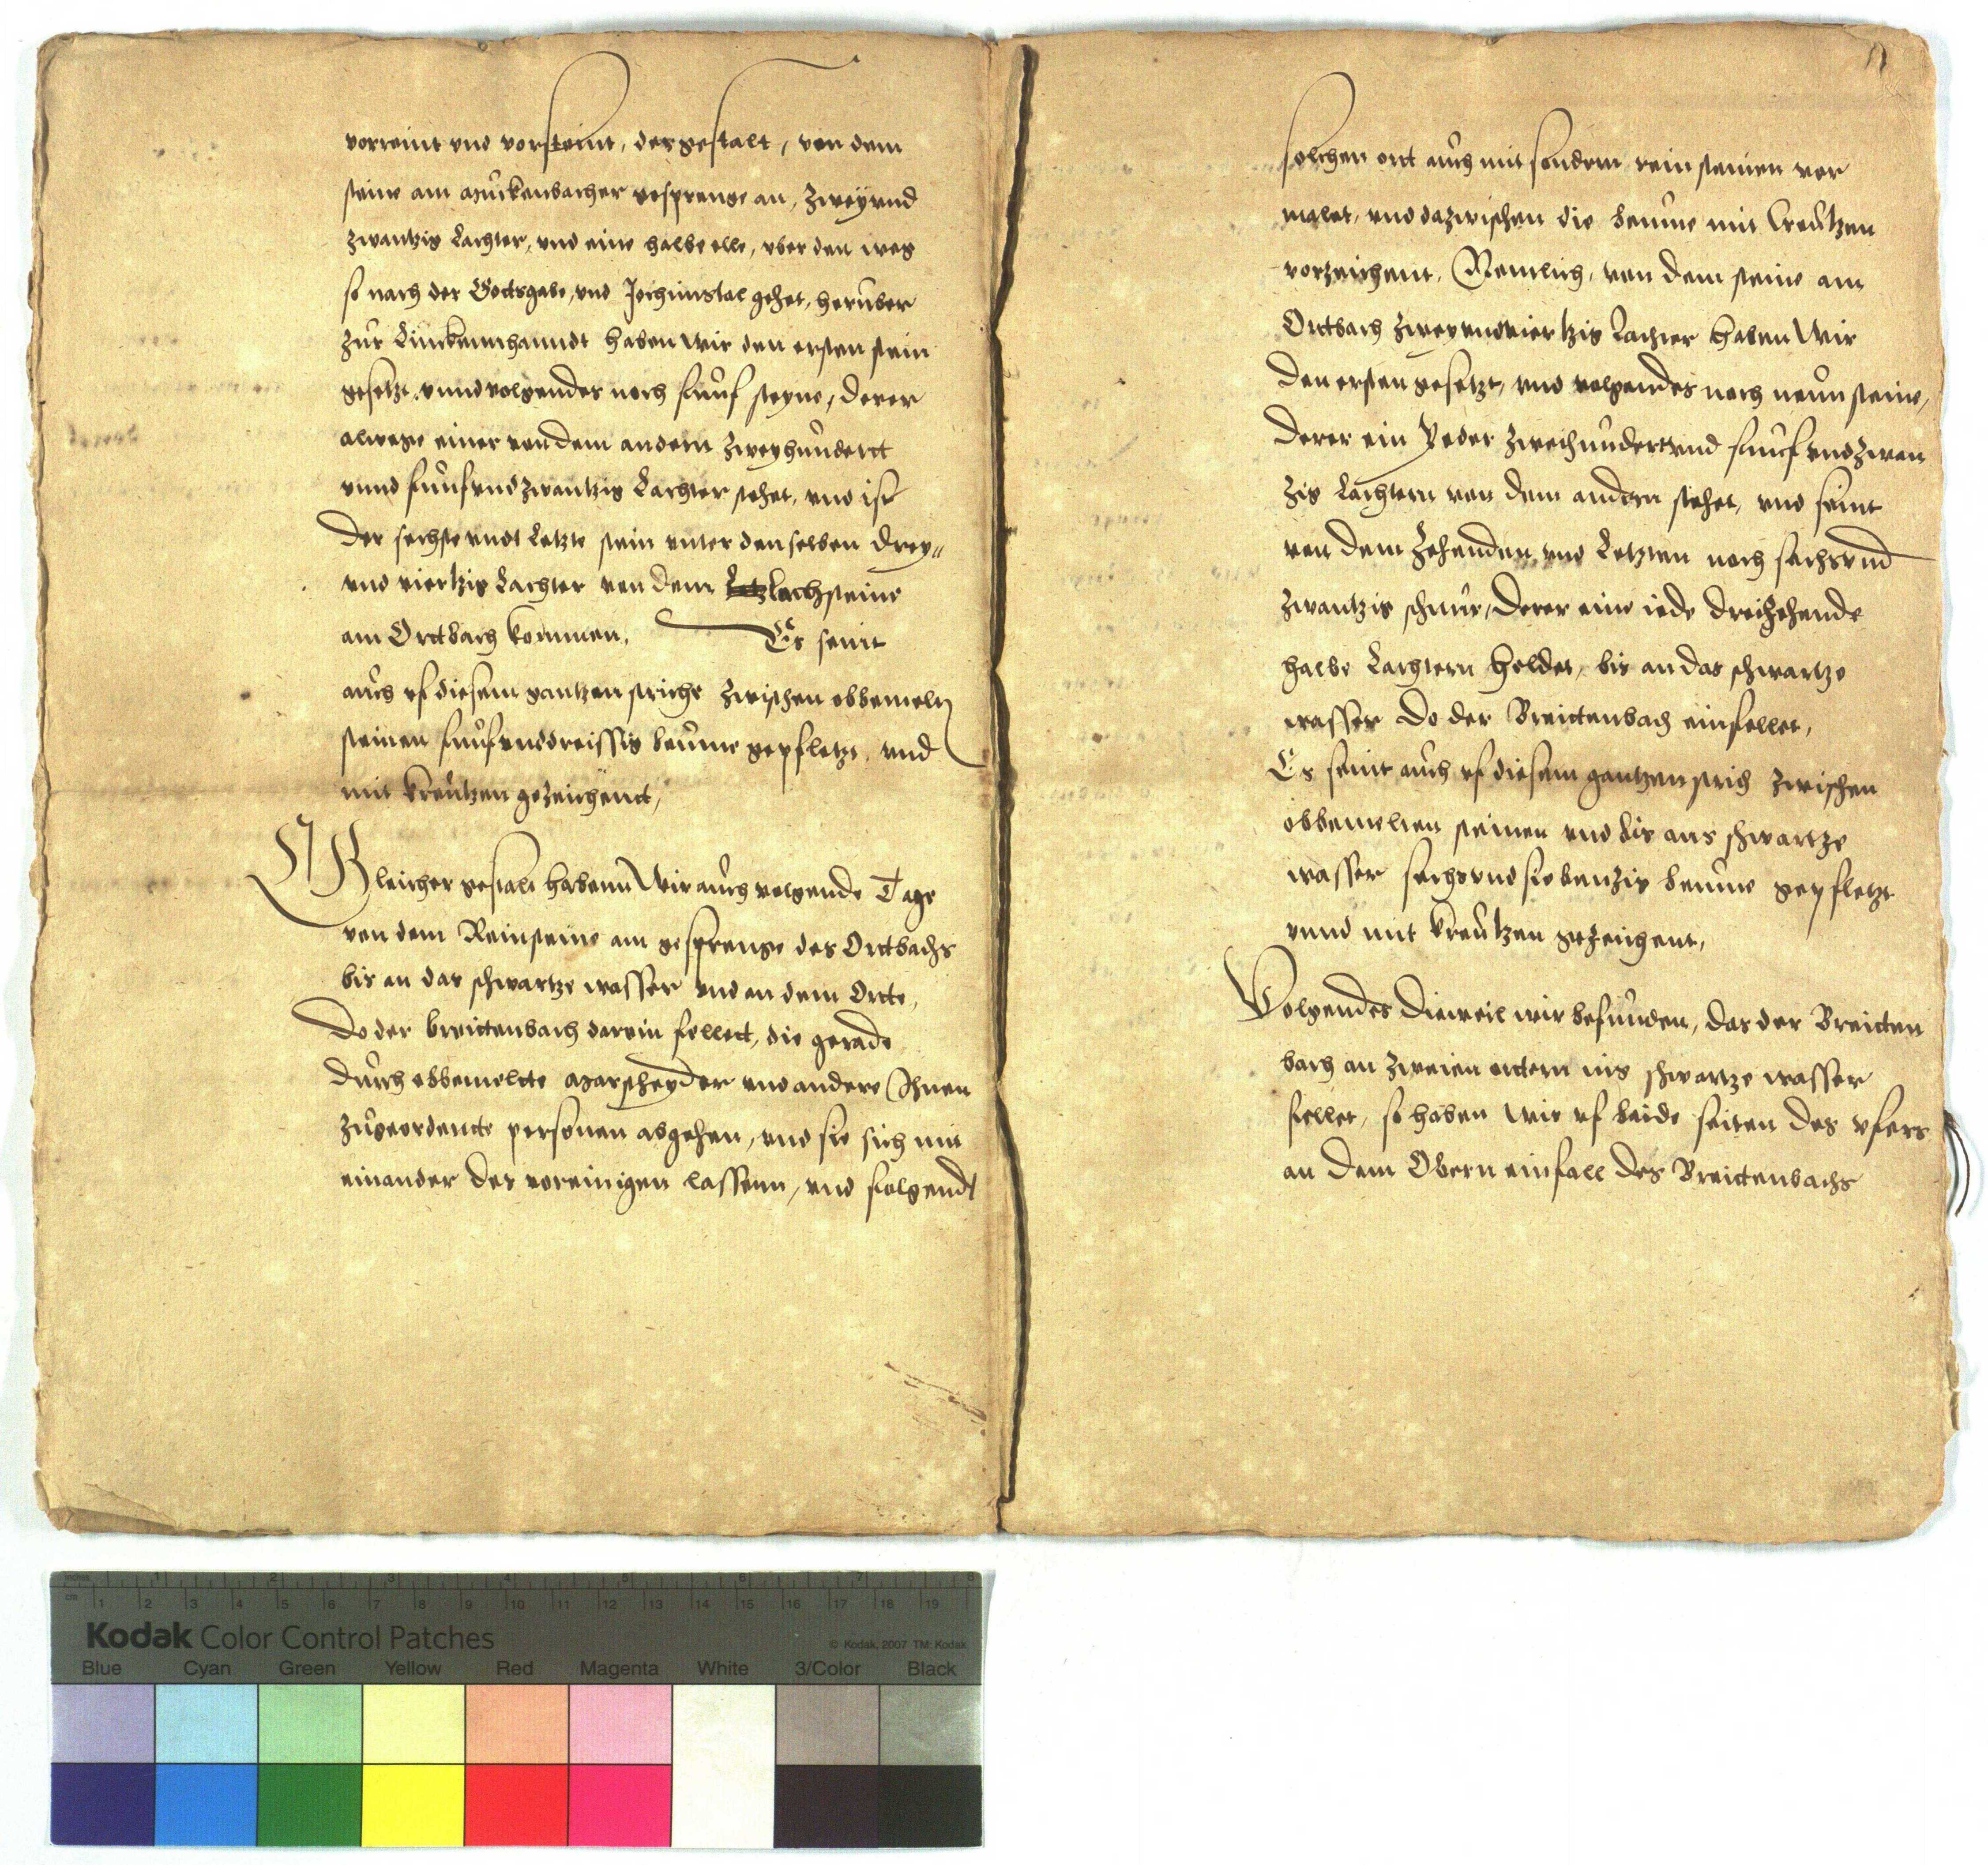 vorreint vnd vorsteint, dergestalt, von dem
steine am Muckenbacher gesprenge an, Zweyvnd
zwantzig Lachter, vnd eine halbe elle, vber den weg
so nach der Gottsgabe, vnd Jochimstal gehet, herůber
zůr Linckennhanndt haben Wir den ersten stein
gesetzt, vnnd volgendes noch funf steyne, derer
alwege einer von dem andern Zweyhůndertt
vnnd funfvndzwantzig Lachter stehet, vnd ist
Der sechste vndt Letzte stein vnter denselben drey-
vnd viertzig Lachter von dem Lochsteine
am Ortbach kommen. Es seint
aůch vf diesem gantzen striche zwischen obbemelten
steinen funfvnddreissig beůme gepfletzt, vnd
mit kreůtzen gezeichent,
Gleicher gestalt habenn Wir aůch volgende Tage
von dem Reinsteine am gesprenge des Ortbachs
bis an das schwartze wasser vnd an dem Orte,
Do der breittenbach darein fellett, die gerade
Důrch obbemelte Marscheyder vnd andere Ihnen
zůgeordente personen abgehen, vnd sie sich mit
einander des voreinigen lassenn, vnd folgendt
11
solchen ort aůch mit sondern reinsteinen vor
malet, vnd dazwischen die beume mit Creůtzen
vorzeichent, Nemlich, von dem steine am
Ortbach Zweyvndviertzig Lachter haben Wir
Den ersten gesetzt, vnd volgendes noch neůn steine,
Derer ein Yeder Zweihůndert vnd funfvndzwan
zig Lachtern von dem andern stehet, vnd seint
von dem Zehenden vnd Letzten noch sechsvnd
zwantzig schnůr, Derer eine iede dreizehende
halbe Lachtern heldet, bis an das schwartze
wasser Do der Breittenbach einfellet,
Es seint aůch vf diesem gantzen strich zwischen
obbemelten steinen vnd bis ans schwartze
wasser sechsvndsiebenzig beume gepfletzt
vnnd mit kreůtzen gezeichent,
Volgendes Dieweil wir befunden, das der Breitten
bach an zweien ortern ins schwartze wasser
fellet, so haben Wir vf beide seiten des vfers
an dem Obern einfall des Breittenbachs
Kodak Color Control Patches
© Kodak, 2007 TM: Kodak
Blue Cyan Green Yellow Red Magenta White 3/Color Black